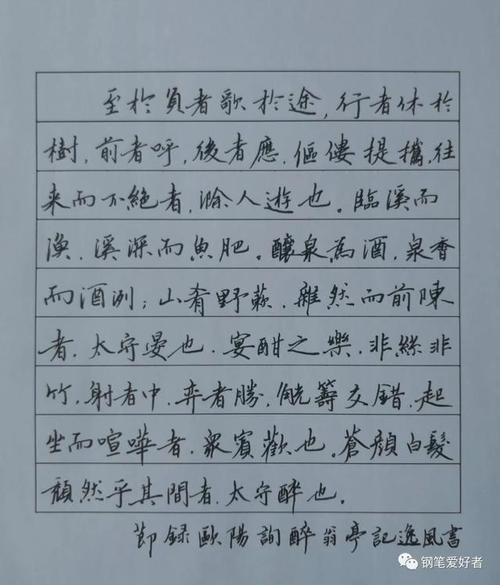 至於負者歌於途，行者休於
樹，前者呼，後者應，傴僂提攜，往
来而不絶者，滁人遊也。臨溪而
漁，溪深而魚肥。釀泉為酒，泉香
而酒洌；山肴野蔌，雜然而前陳
者，太守晏也。宴酣之樂，非絲非
竹，射者中，弈者勝，觥籌交錯，起
坐而喧嘩者，衆賓歡也。蒼顔白髮
頽然乎其間者，太守醉也。
節録歐陽詢醉翁亭記逸風書
钢笔爱好者